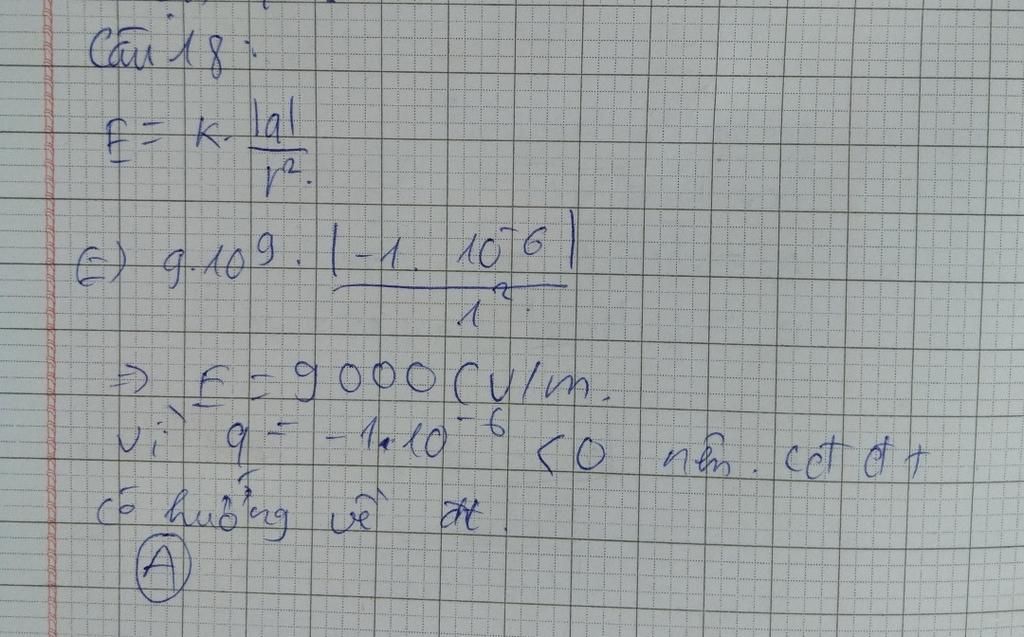 Câu 18:
E = k. |q| / r².
(=) 9.10⁹. |-1. 10⁻⁶| / 1².
=> E = 9000 (V/m.
vì q = -1.10⁻⁶ < 0 nên. cđ đt
có hướng về đt.
A